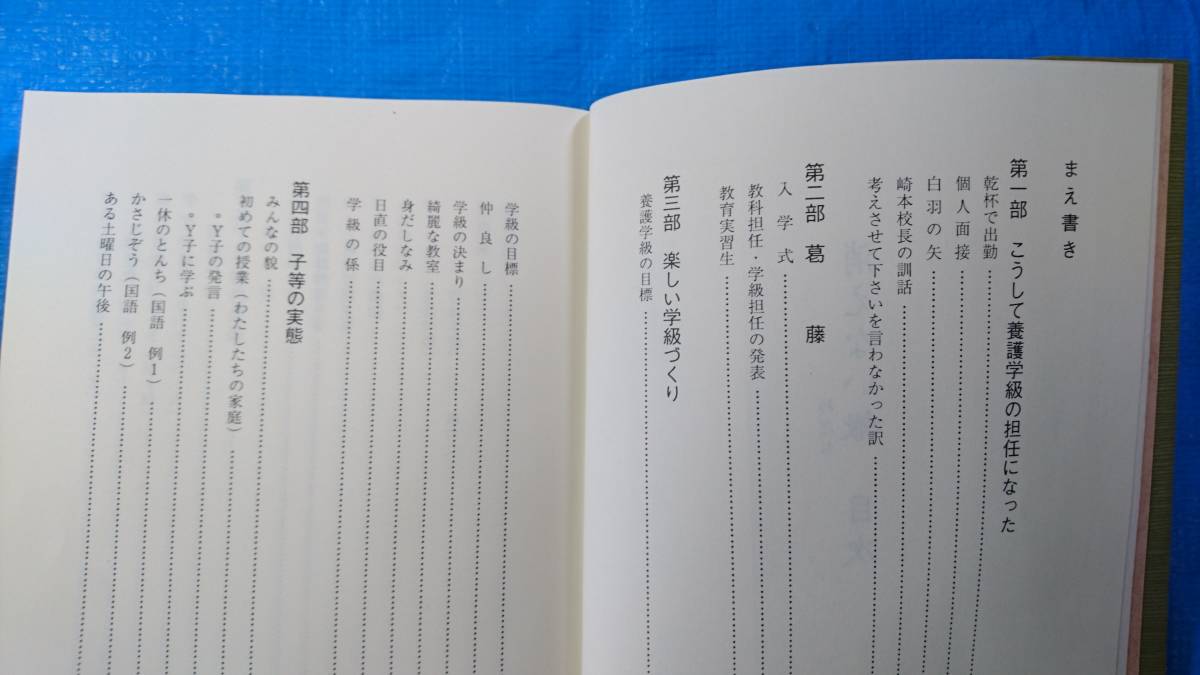 まえ書き
第一部　こうして養護学級の担任になった
乾杯で出勤
個人面接
白羽の矢
崎本校長の訓話
考えさせて下さいを言わなかった訳
第二部　葛　藤
入学式
教科担任・学級担任の発表
教育実習生
第三部　楽しい学級づくり
養護学級の目標
学級の目標
仲良し
学級の決まり
綺麗な教室
身だしなみ
日直の役目
学級の係
第四部　子等の実態
みんなの貌
初めての授業（わたしたちの家庭）
。Y子の発言
。Y子に学ぶ
一休のとんち（国語　例1）
かさじぞう（国語　例2）
ある土曜日の午後